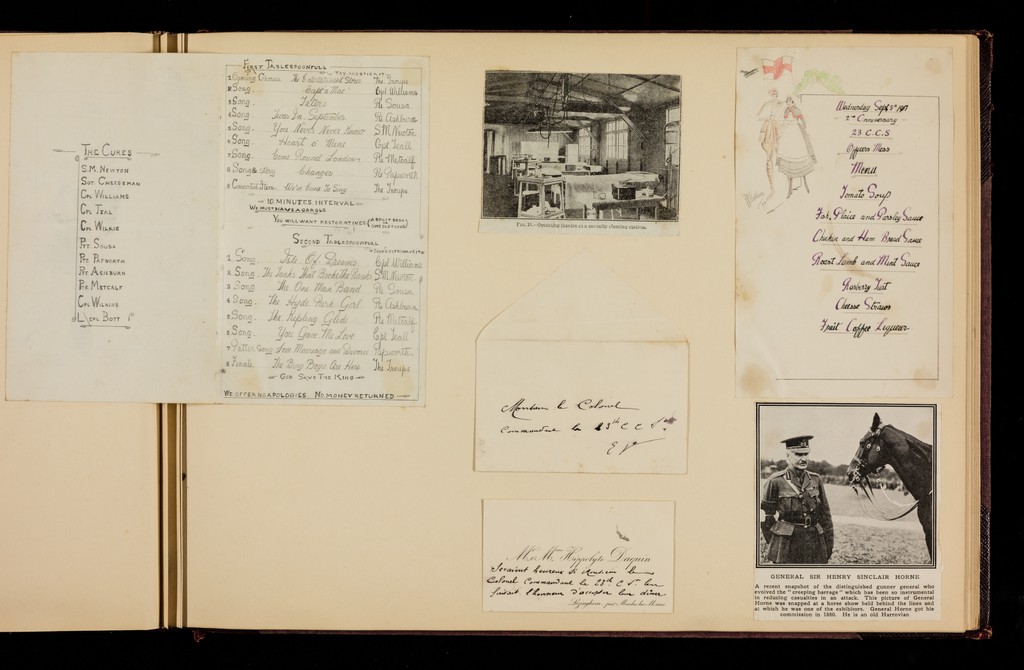 THE CURES
S.M. NEWTON
SGT. CHEESEMAN
CPL WILLIAMS
CPL TEAL
CPL WILKIE
PTE. SOUSA
PTE PAPWORTH
PTE ASHBURN
PTE METCALF
CPL WILKINS
L/CPL BOTT
FIRST TABLESPOONFULL
1 Opening Chorus. The The Troupe
2 Song. Capt'n Mac' Cpl Williams
3 Song. Pte Sousa
4 Song. Twas In September Pte Ashburn
5 Song. You Never Never Know S.M. Newton
6 Song. Heart o' Mine Cpl Teall
7 Song. Come Round London Pte Metcalf
8 Song & Story Changes Pte Papworth
9 Concerted Item. We've Come To Sing The Troupe
10 MINUTES INTERVAL
WE MUST HAVE A GARGLE
YOU WILL WANT RESTORATIVES
SECOND TABLESPOONFULL
1. Song. Isle Of Dreams. Cpl Williams
2. Song. The Tanks That Broke The Ranks S.M. Newton
3 Song. The One Man Band Pte Sousa
4 Song. The Hyde Park Girl Pte Ashburn
5. Song. The Kipling Glide Pte Metcalf
6. Song. You Gave Me Love Cpl Teall
7 Patter Song Love Marriage and Divorce Papworth
8 Finale. The Bing Boys Are Here The Troupe
GOD SAVE THE KING
WE OFFER NO APOLOGIES. NO MONEY RETURNED
FIG. 10.—Operating theatre at a casualty clearing station.
Monsieur le Colonel
Commandant le 23th C C St
E V
Mr et Mme Hippolyte Daquin
Seraient heureux si Monsieur le
Colonel Commandant le 23th C C St leur
faisait l'honneur d'accepter leur dîner
Wednesday Sept 5th 1917
2nd Anniversary
23 C.C.S
Officers Mess
Menu
Tomato Soup
Fish, Plaice and Parsley Sauce
Chicken and Ham Bread Sauce
Roast Lamb and Mint Sauce
Rasberry Tart
Cheese Straws
Fruit Coffee Liqueur
GENERAL SIR HENRY SINCLAIR HORNE
A recent snapshot of the distinguished gunner general who
evolved the "creeping barrage" which has been so instrumental
in reducing casualties in an attack. This picture of General
Horne was snapped at a horse show held behind the lines and
at which he was one of the exhibitors. General Horne got his
commission in 1880. He is an old Harrovian